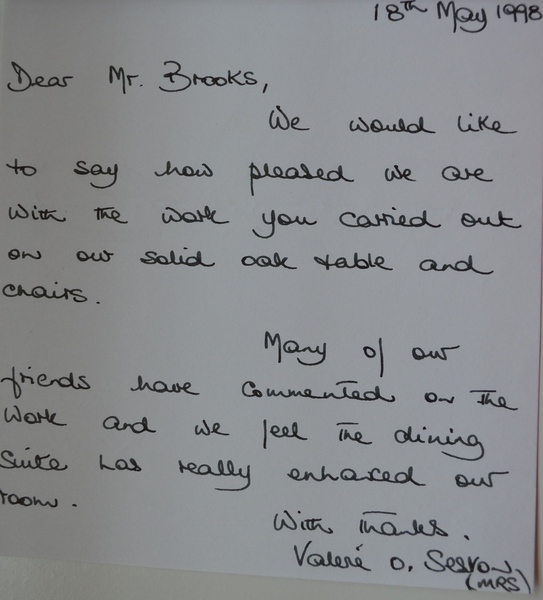 18th May 1998
Dear Mr. Brooks,
We would like
to say how pleased we are
with the work you carried out
on our solid oak table and
chairs.
Many of our
friends have commented on the
work and we feel the dining
suite has really enhaced our
room.
With Thanks.
Valerie O.
(MRS)